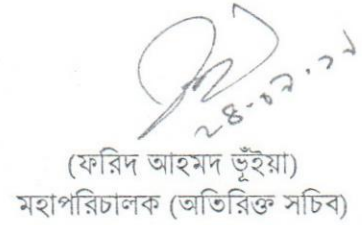 (ফরিদ আহমদ ভূঁইয়া)
মহাপরিচালক (অতিরিক্ত সচিব)